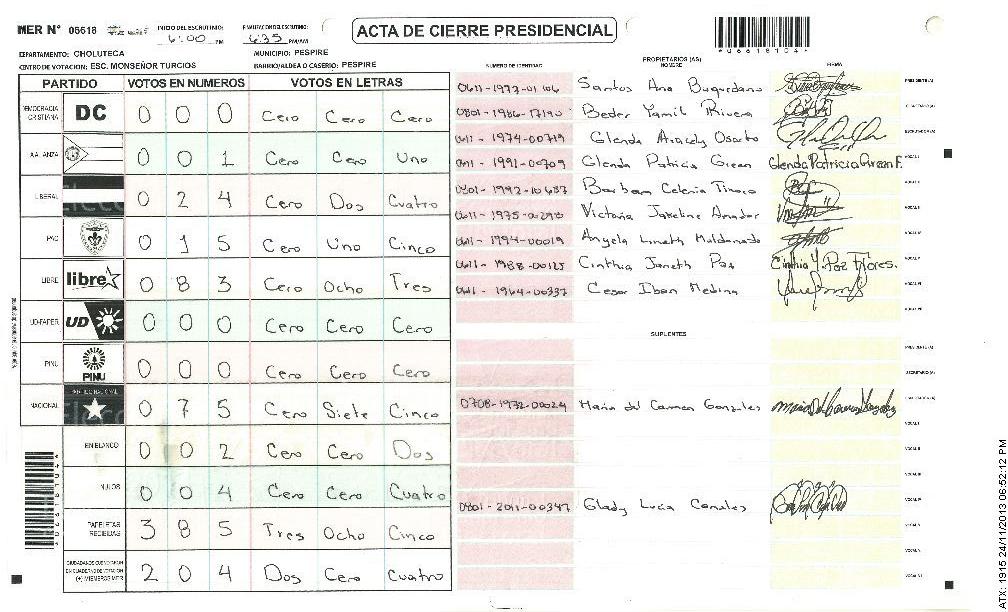 MER Nº 06618 INICIO DEL ESCRUTINIO: 6:00 PM FINALIZACION DEL ESCRUTINIO: 6:35 PM/AM
ACTA DE CIERRE PRESIDENCIAL
DEPARTAMENTO: CHOLUTECA MUNICIPIO: PESPIRE
CENTRO DE VOTACION: ESC. MONSEÑOR TURCIOS BARRIO/ALDEA O CASERIO: PESPIRE
PARTIDO VOTOS EN NUMEROS VOTOS EN LETRAS
DEMOCRACIA CRISTIANA DC 0 0 0 Cero Cero Cero
ALIANZA 0 0 1 Cero Cero Uno
LIBERAL 0 2 4 Cero Dos Cuatro
PAC 0 1 5 Cero Uno Cinco
LIBRE libre 0 8 3 Cero Ocho Tres
UD-FAPER UD 0 0 0 Cero Cero Cero
PINU PINU 0 0 0 Cero Cero Cero
NACIONAL 0 7 5 Cero Siete Cinco
EN BLANCO 0 0 2 Cero Cero Dos
NULOS 0 0 4 Cero Cero Cuatro
PAPELETAS RECIBIDAS 3 8 5 Tres Ocho Cinco
CIUDADANOS QUE VOTARON EN CUADERNO DE VOTACION (+) MIEMBROS MER 2 0 4 Dos Cero Cuatro
NUMERO DE IDENTIDAD PROPIETARIOS (AS) NOMBRE FIRMA
Santos Ana PRESIDENTE (A)
0801-1986-17190 Beder Yamil Rivera SECRETARIO (A)
0611-1974-00719 Glenda Aracely Osorto ESCRUTADOR (A)
0611-1991-00709 Glenda Patricia Green Glenda Patricia Green F. VOCAL I
Celenia Tinoco VOCAL II
Victoria Jakeline Amador VOCAL III
0611-1994-00019 Angela Lineth Maldonado VOCAL IV
0611-1988-00125 Cinthia Janeth Paz Cinthia Y. Paz Flores. VOCAL V
0611-1964-00337 Cesar Iban Medina VOCAL VI
VOCAL VII
SUPLENTES
PRESIDENTE (A)
SECRETARIO (A)
0708-1972-00024 Maria del Carmen Gonzales ESCRUTADOR (A)
VOCAL I
VOCAL II
VOCAL III
0801-2011-00347 Glady Lucia Canales VOCAL IV
VOCAL V
VOCAL VI
ATX: 1915 24/11/2013 06:52:12 PM